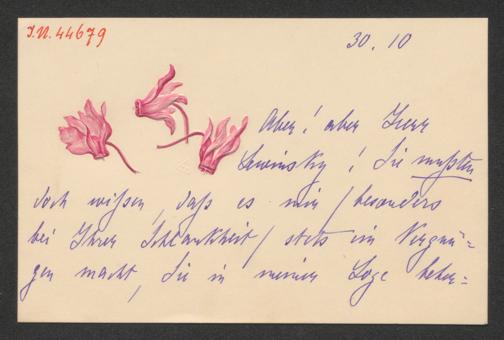 I.N. 44679
30. 10
Aber! aber Herr
Lewinsky! Sie mußten
doch wissen, daß es mir /besonders
bei Ihrer Schlankheit/ stets ein Vergnü=
gen macht, Sie in meiner Loge beher=